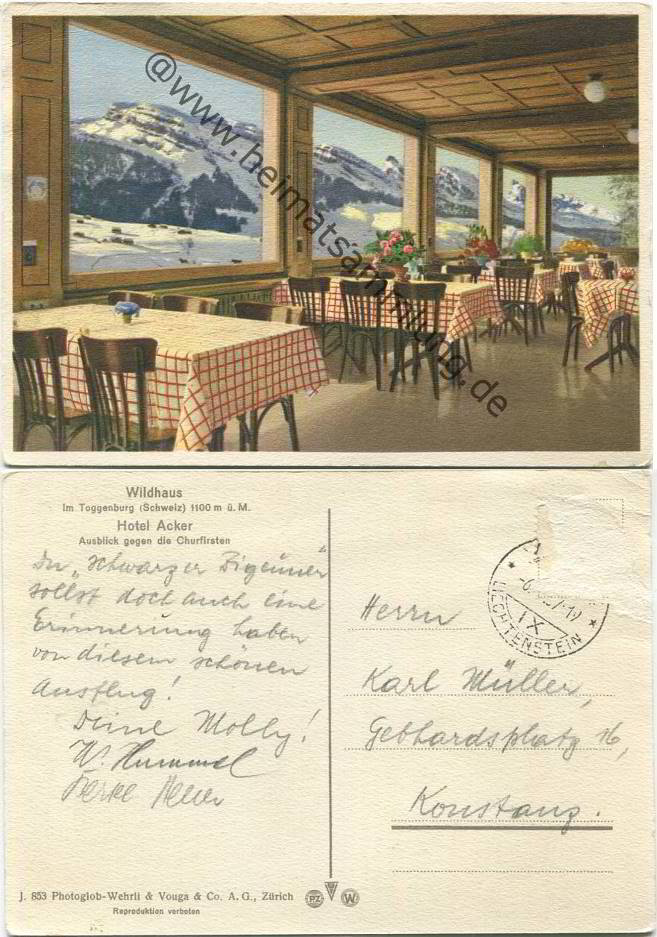 @www.heimatsammlung.de
Wildhaus
Im Toggenburg (Schweiz) 1100 m ü. M.
Hotel Acker
Ausblick gegen die Churfirsten
Du „schwarzer Zigeuner"
sollst doch auch eine
Erinnerung haben
von diesem schönen
Ausflug!
Deine Molly!
W. Hummel
LIECHTENSTEIN
IX
Herrn
Karl Müller,
Gebhardsplatz 16,
Konstanz.
J. 853 Photoglob-Wehrli & Vouga & Co. A. G., Zürich
PZ
W
Reproduktion verboten